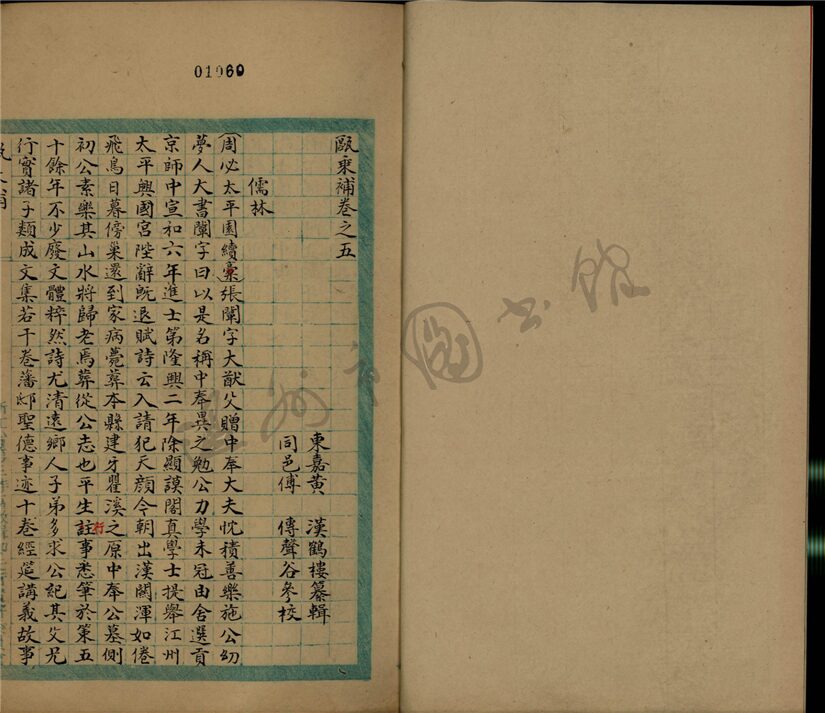 01060
甌乘補卷之五
東嘉黃 漢鶴樓纂輯
同邑傅 傳聲谷參校
儒林
(周必太平園續稾)張闡字大猷父贈中奉大夫忱積善樂施公幼
夢人大書闡字曰以是名稱中奉異之勉公力學未冠由舍選貢
京師中宣和六年進士第隆興二年除顯謨閣真學士提舉江州
太平興國宮陛辭既退賦詩云入請犯天顏今朝出漢闕渾如倦
飛鳥日暮傍巢還到家病薨葬本縣建牙瞿溪之原中奉公墓側
初公素樂其山水將歸老焉葬從公志也平生註行事悉筆於策五
十餘年不少廢文體粹然詩尤清遠鄉人子弟多求公紀其父兄
行實諸子類成文集若干卷藩邸聖德事迹十卷經筵講義故事
溫州市圖書館